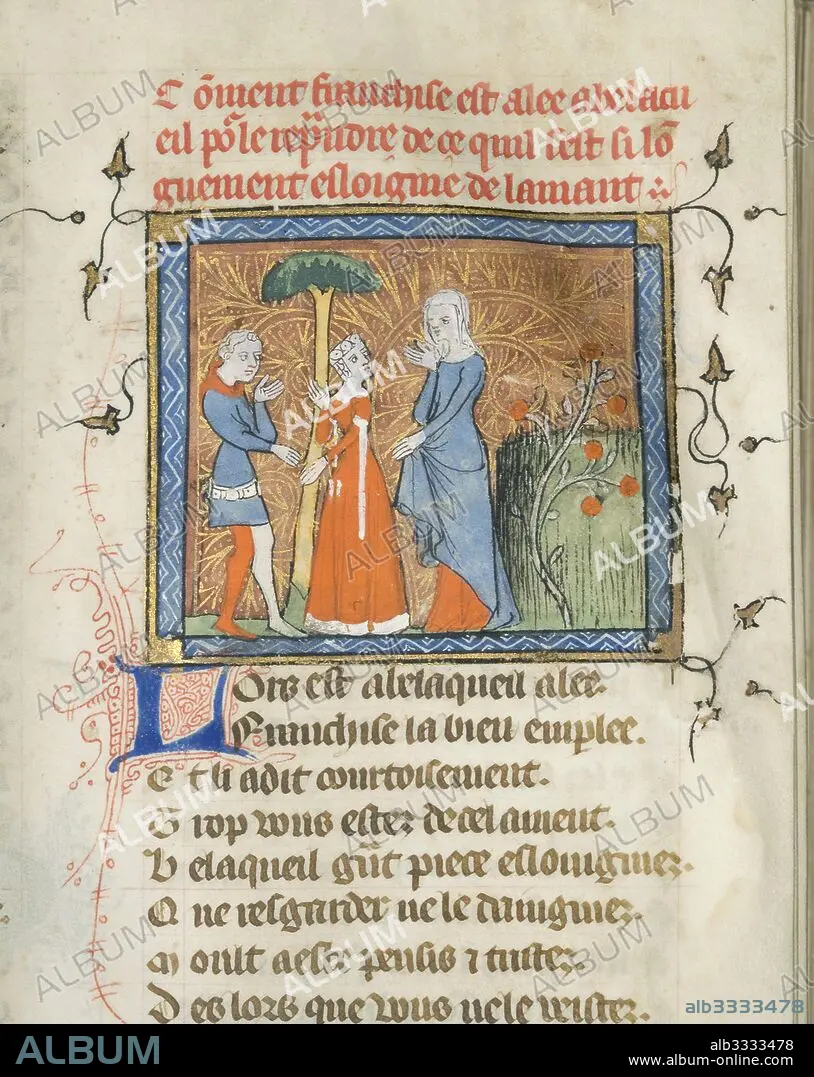 Cōment franchise est alee abelacu
eil pōr le reprēdre de ce quil sest si lō
guement esloignie de lamant
Lors est a belaqueil alee.
Franchise la bien emplee.
Et li a dit courtoisement.
Trop vous estez de cel ament.
Belaqueil grāt piece eslongniez.
Que resgarder ne le daingniez.
Moult a este pensis ⁊ tristez.
Des lors que vous ne le veistez.
ALBUM
alb3333478
ALBUM
alb3333478
www.album-online.com